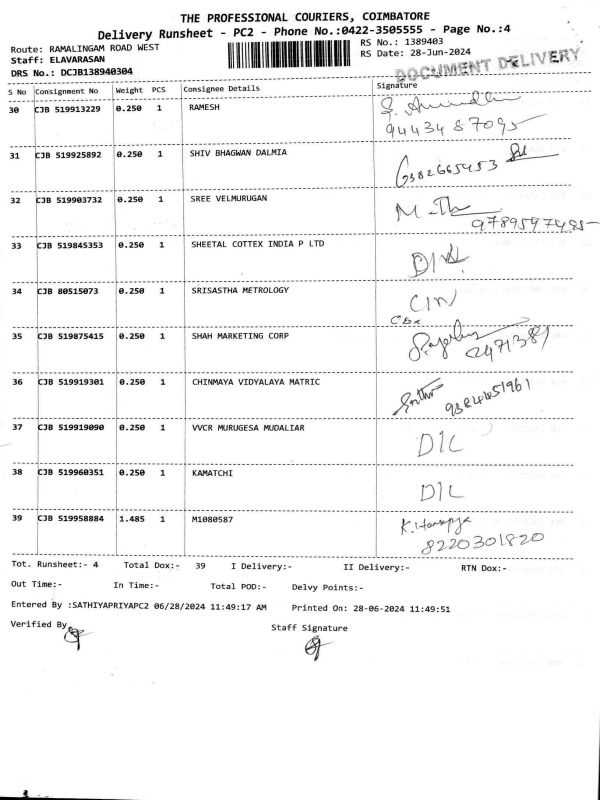 THE PROFESSIONAL COURIERS, COIMBATORE
Delivery Runsheet - PC2 - Phone No.:0422-3505555 - Page No.:4
Route: RAMALINGAM ROAD WEST RS No.: 1389403
Staff: ELAVARASAN RS Date: 28-Jun-2024
DRS No.: DCJB138940304 DOCUMENT DELIVERY
S No Consignment No Weight PCS Consignee Details Signature
30 CJB 519913229 0.250 1 RAMESH
9443487095
31 CJB 519925892 0.250 1 SHIV BHAGWAN DALMIA
6382665453
32 CJB 519903732 0.250 1 SREE VELMURUGAN
33 CJB 519845353 0.250 1 SHEETAL COTTEX INDIA P LTD
34 CJB 80515073 0.250 1 SRISASTHA METROLOGY
35 CJB 519875415 0.250 1 SHAH MARKETING CORP
36 CJB 519919301 0.250 1 CHINMAYA VIDYALAYA MATRIC
37 CJB 519919090 0.250 1 VVCR MURUGESA MUDALIAR
D/L
38 CJB 519960351 0.250 1 KAMATCHI
D/L
39 CJB 519958884 1.485 1 M1080587
8220301820
Tot. Runsheet:- 4 Total Dox:- 39 I Delivery:- II Delivery:- RTN Dox:-
Out Time:- In Time:- Total POD:- Delvy Points:-
Entered By :SATHIYAPRIYAPC2 06/28/2024 11:49:17 AM Printed On: 28-06-2024 11:49:51
Verified By Staff Signature